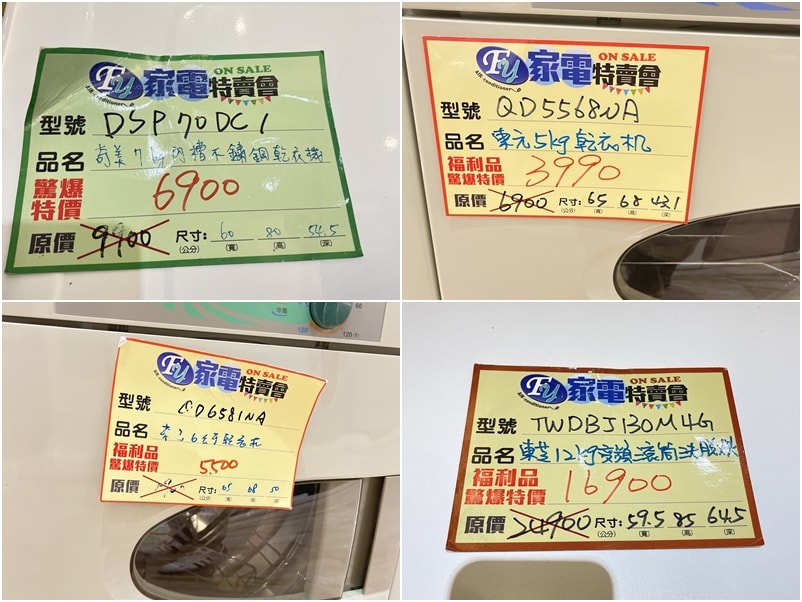 Fy 家電特賣會 ON SALE
Air conditioner
型號 DSP70DC1
品名 奇美7公斤內槽不鏽鋼乾衣機
驚爆特價 6900
原價 9900 尺寸:(公分) 60(寬) 80(高) 54.5(深)
Fy 家電特賣會 ON SALE
Air conditioner
型號 QD5568NA
品名 東元5kg乾衣机
福利品
驚爆特價 3990
原價 6900 尺寸:(公分) 65(寬) 68(高) 43.1(深)
60
冷風
180
120(分)
Fy 家電特賣會 ON SALE
Air conditioner
型號 QD6581NA
品名 東元6公斤乾衣机
福利品
驚爆特價 5500
原價 尺寸:(公分) 65(寬) 68(高) 50(深)
Fy 家電特賣會 ON SALE
Air conditioner
型號 TWDBJ130M4G
品名 東芝12kg變頻滾筒洗脫烘
福利品
驚爆特價 16900
原價 24900 尺寸:(公分) 59.5(寬) 85(高) 64.5(深)